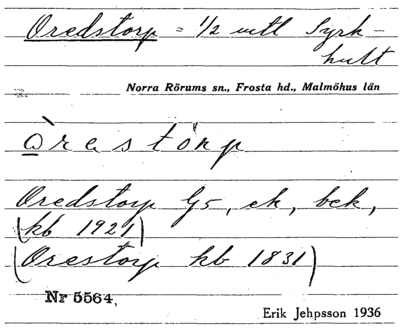 Oredstorp = 1/2 mtl Syrk-
hult
Norra Rörums sn., Frosta hd., Malmöhus län
òrastórp
Oredstorp Gs, ek, bck,
(kb 1921)
(Orestorp kb 1831)
Nr 5564,
Erik Jehpsson 1936